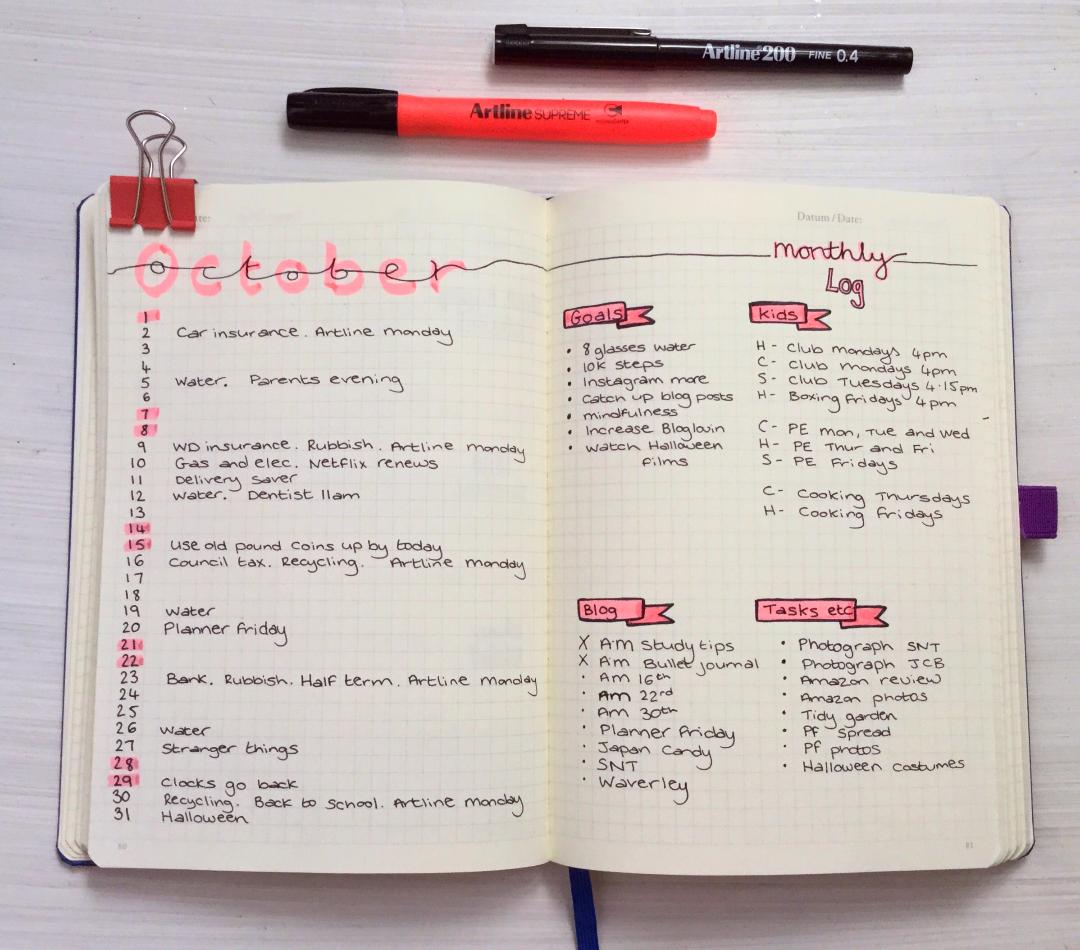 Artline 200 FINE 0.4
Artline SUPREME
te:
October
1
2 Car insurance. Artline monday
3
4
5 Water. Parents evening
6
7
8
9 WD insurance. Rubbish. Artline monday
10 Gas and elec. Netflix renews
11 Delivery Saver
12 Water. Dentist 11am
13
14
15 Use old pound coins up by today
16 Council tax. Recycling. Artline monday
17
18
19 Water
20 Planner Friday
21
22
23 Bank. Rubbish. Half term. Artline monday
24
25
26 Water
27 Stranger things
28
29 Clocks go back
30 Recycling. Back to School. Artline monday
31 Halloween
80
Datum / Date:
monthly
Log
Goals
• 8 glasses water
• 10K steps
• Instagram more
• Catch up blog posts
• mindfulness
• Increase Bloglovin
• Watch Halloween
films
Kids
H- Club mondays 4pm
C- Club mondays 4pm
S- Club Tuesdays 4.15pm
H- Boxing Fridays 4pm
C- PE mon, Tue and Wed
H- PE Thur and Fri
S- PE Fridays
C- Cooking Thursdays
H- Cooking Fridays
Blog
X AM Study tips
X Am Bullet journal
· Am 16th
· Am 22nd
· Am 30th
· Planner Friday
· Japan Candy
· SNT
· Waverley
Tasks etc
• Photograph SNT
• Photograph JCB
• Amazon review
• Amazon photos
• Tidy garden
• PF spread
• Pf photos
• Halloween costumes
81